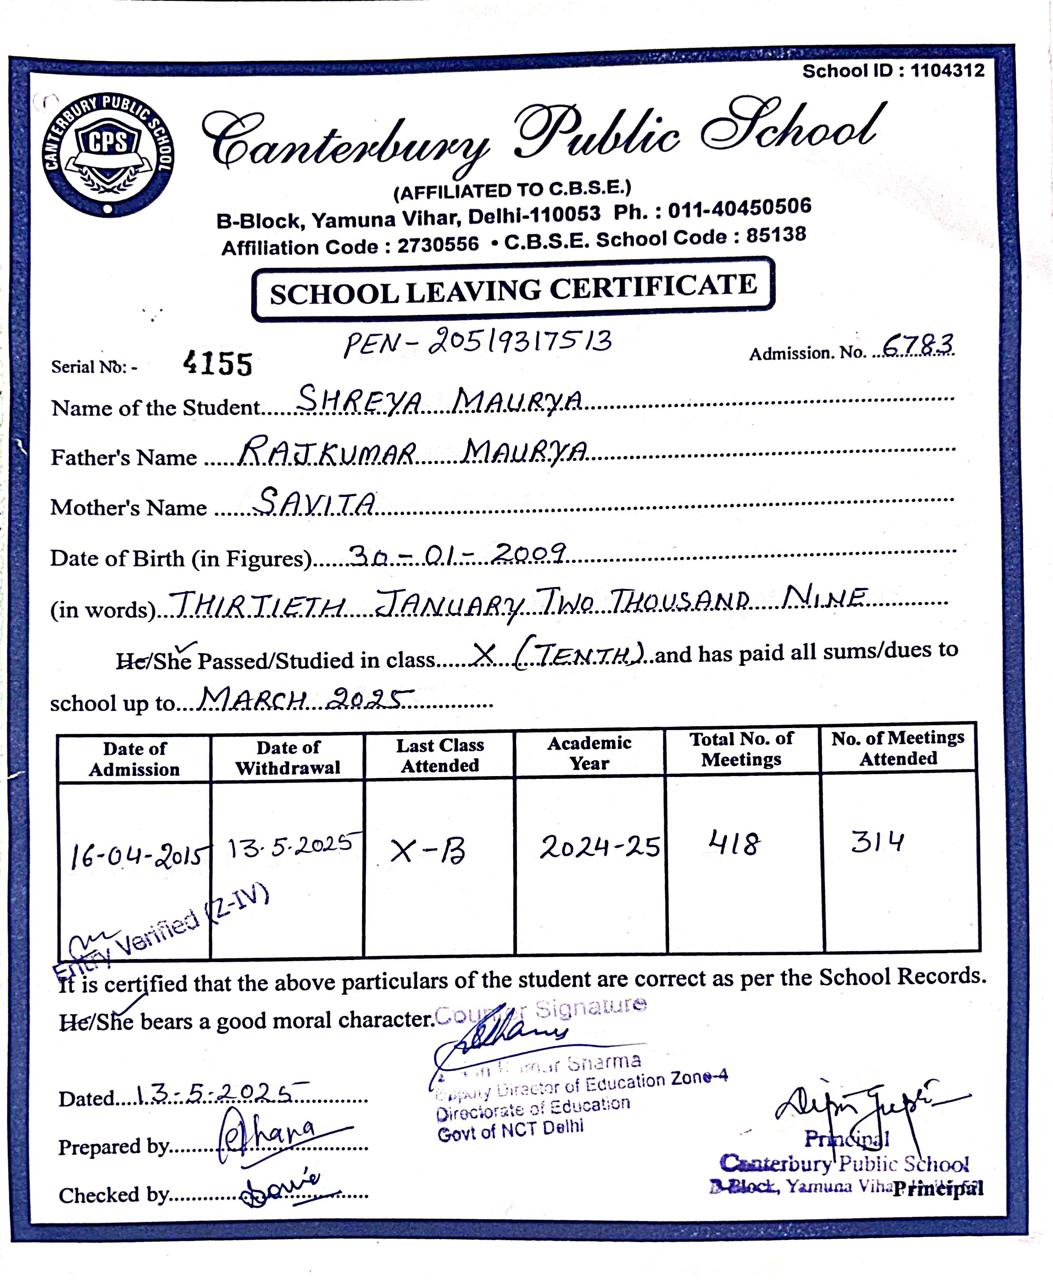 School ID : 1104312
CANTERBURY PUBLIC SCHOOL
CPS
Canterbury Public School
(AFFILIATED TO C.B.S.E.)
B-Block, Yamuna Vihar, Delhi-110053 Ph. : 011-40450506
Affiliation Code : 2730556 • C.B.S.E. School Code : 85138
SCHOOL LEAVING CERTIFICATE
PEN- 20519317513
Serial No: - 4155 Admission. No. 6783
Name of the Student SHREYA MAURYA
Father's Name RAJKUMAR MAURYA
Mother's Name SAVITA
Date of Birth (in Figures) 30-01-2009
(in words) THIRTIETH JANUARY TWO THOUSAND NINE
He/She Passed/Studied in class X (TENTH) and has paid all sums/dues to
school up to MARCH 2025
Date of Admission Date of Withdrawal Last Class Attended Academic Year Total No. of Meetings No. of Meetings Attended
16-04-2015 13.5.2025 X-B 2024-25 418 314
Entry Verified (Z-IV)
It is certified that the above particulars of the student are correct as per the School Records.
He/She bears a good moral character.
Counter Signature
Sharma
Deputy Director of Education Zone-4
Directorate of Education
Govt of NCT Delhi
Dated 13-5-2025
Prepared by
Checked by
Principal
Canterbury Public School
B-Block, Yamuna Vihar
Principal